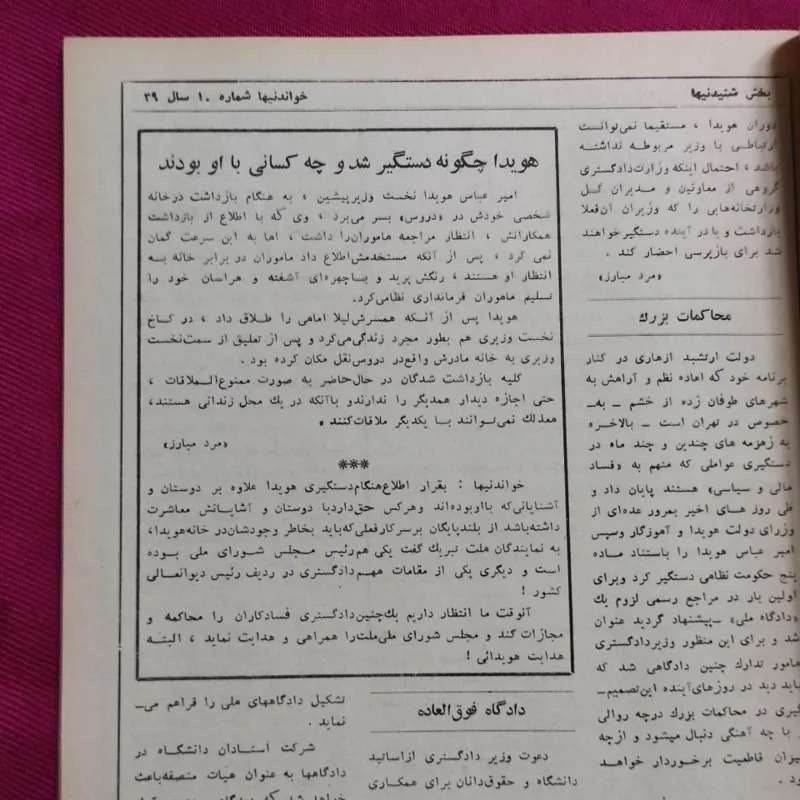 بخش شنیدنیها
خواندنیها شماره ۱۰ سال ۳۹
دوران هویدا ، مستقیما نمی‌توانست
ارتباطی با وزیر مربوطه نداشته
باشد ، احتمال اینکه وزارت‌دادگستری
گروهی از معاونین و مدیران کل
وزارتخانه‌هایی را که وزیران آن‌فعلا
بازداشت و یا در آینده دستگیرخواهند
شد برای بازپرسی احضار کند .
«مرد مبارز»
محاکمات بزرك
دولت ارتشبد ازهاری در کنار
برنامه خود که اعاده نظم و آرامش به
شهرهای طوفان زده از خشم ـ به‌ـ
خصوص در تهران است ـ بالاخره
به زمزمه های چندین و چند ماه در
دستگیری عواملی که متهم به «فساد
مالی و سیاسی» هستند پایان داد و
طی روز های اخیر بمرور عده‌ای از
وزرای دولت هویدا و آموزگار وسپس
امیر عباس هویدا را باستناد ماده
پنج حکومت نظامی دستگیر کرد وبرای
اولین بار در مراجع رسمی لزوم یك
«دادگاه ملی» ـ‌پیشنهاد گردید عنوان
شد و برای این منظور وزیردادگستری
مامور تدارك چنین دادگاهی شد که
باید دید در روزهای‌آینده این‌تصمیم‌ـ
گیری در محاکمات بزرك درچه روالی
و با چه آهنگی دنبال میشود و ازچه
میزان قاطعیت برخوردار خواهد
بود .
هویدا چگونه دستگیر شد و چه کسانی با او بودند
امیر عباس هویدا نخست وزیرپیشین ، به هنگام بازداشت درخانه
شخصی خودش در «دروس» بسر می‌برد ، وی که با اطلاع از بازداشت
همکارانش ، انتظار مراجعه ماموران‌را داشت ، اما به این سرعت گمان
نمی کرد ، پس از آنکه مستخدمش‌اطلاع داد ماموران در برابر خانه به
انتظار او هستند ، رنگش پرید و باچهره‌ای آشفته و هراسان خود را
تسلیم ماموران فرمانداری نظامی‌کرد.
هویدا پس از آنکه همسرش‌لیلا امامی را طلاق داد ، در کاخ
نخست وزیری هم بطور مجرد زندگی‌می‌کرد و پس از تعلیق از سمت‌نخست
وزیری به خانه مادرش واقع‌در دروس‌نقل مکان کرده بود .
کلیه بازداشت شدگان در حال‌حاضر به صورت ممنوع‌الملاقات ،
حتی اجازه دیدار همدیگر را ندارندو باآنکه در یك محل زندانی هستند،
معذلك نمی‌توانند با یکدیگر ملاقات‌کنند »
«مرد مبارز»
***
خواندنیها : بقرار اطلاع‌هنگام‌دستگیری هویدا علاوه بر دوستان و
آشنایانی‌که بااوبوده‌اند وهرکس حق‌داردبا دوستان و آشنایانش معاشرت
داشته‌باشد از بلندپایگان برسرکارفعلی‌که‌باید بخاطر وجودشان‌در خانه‌هویدا،
به نمایندگان ملت تبریك گفت یکی هم‌رئیس مجلس شورای ملی بوده
است و دیگری یکی از مقامات مهم‌دادگستری در ردیف رئیس دیوانعالی
کشور !
آنوقت ما انتظار داریم یك‌چنین‌دادگستری فسادکاران را محاکمه و
مجازات کند و مجلس شورای ملی‌ملت‌را همراهی و هدایت نماید ، البته
هدایت هویدائی !
دادگاه فوق‌العاده
دعوت وزیر دادگستری ازاساتید
دانشگاه و حقوق‌دانان برای همکاری
تشکیل دادگاههای ملی را فراهم می‌ـ
نماید .
شرکت استادان دانشگاه در
دادگاهها به عنوان هیات منصفه‌باعث